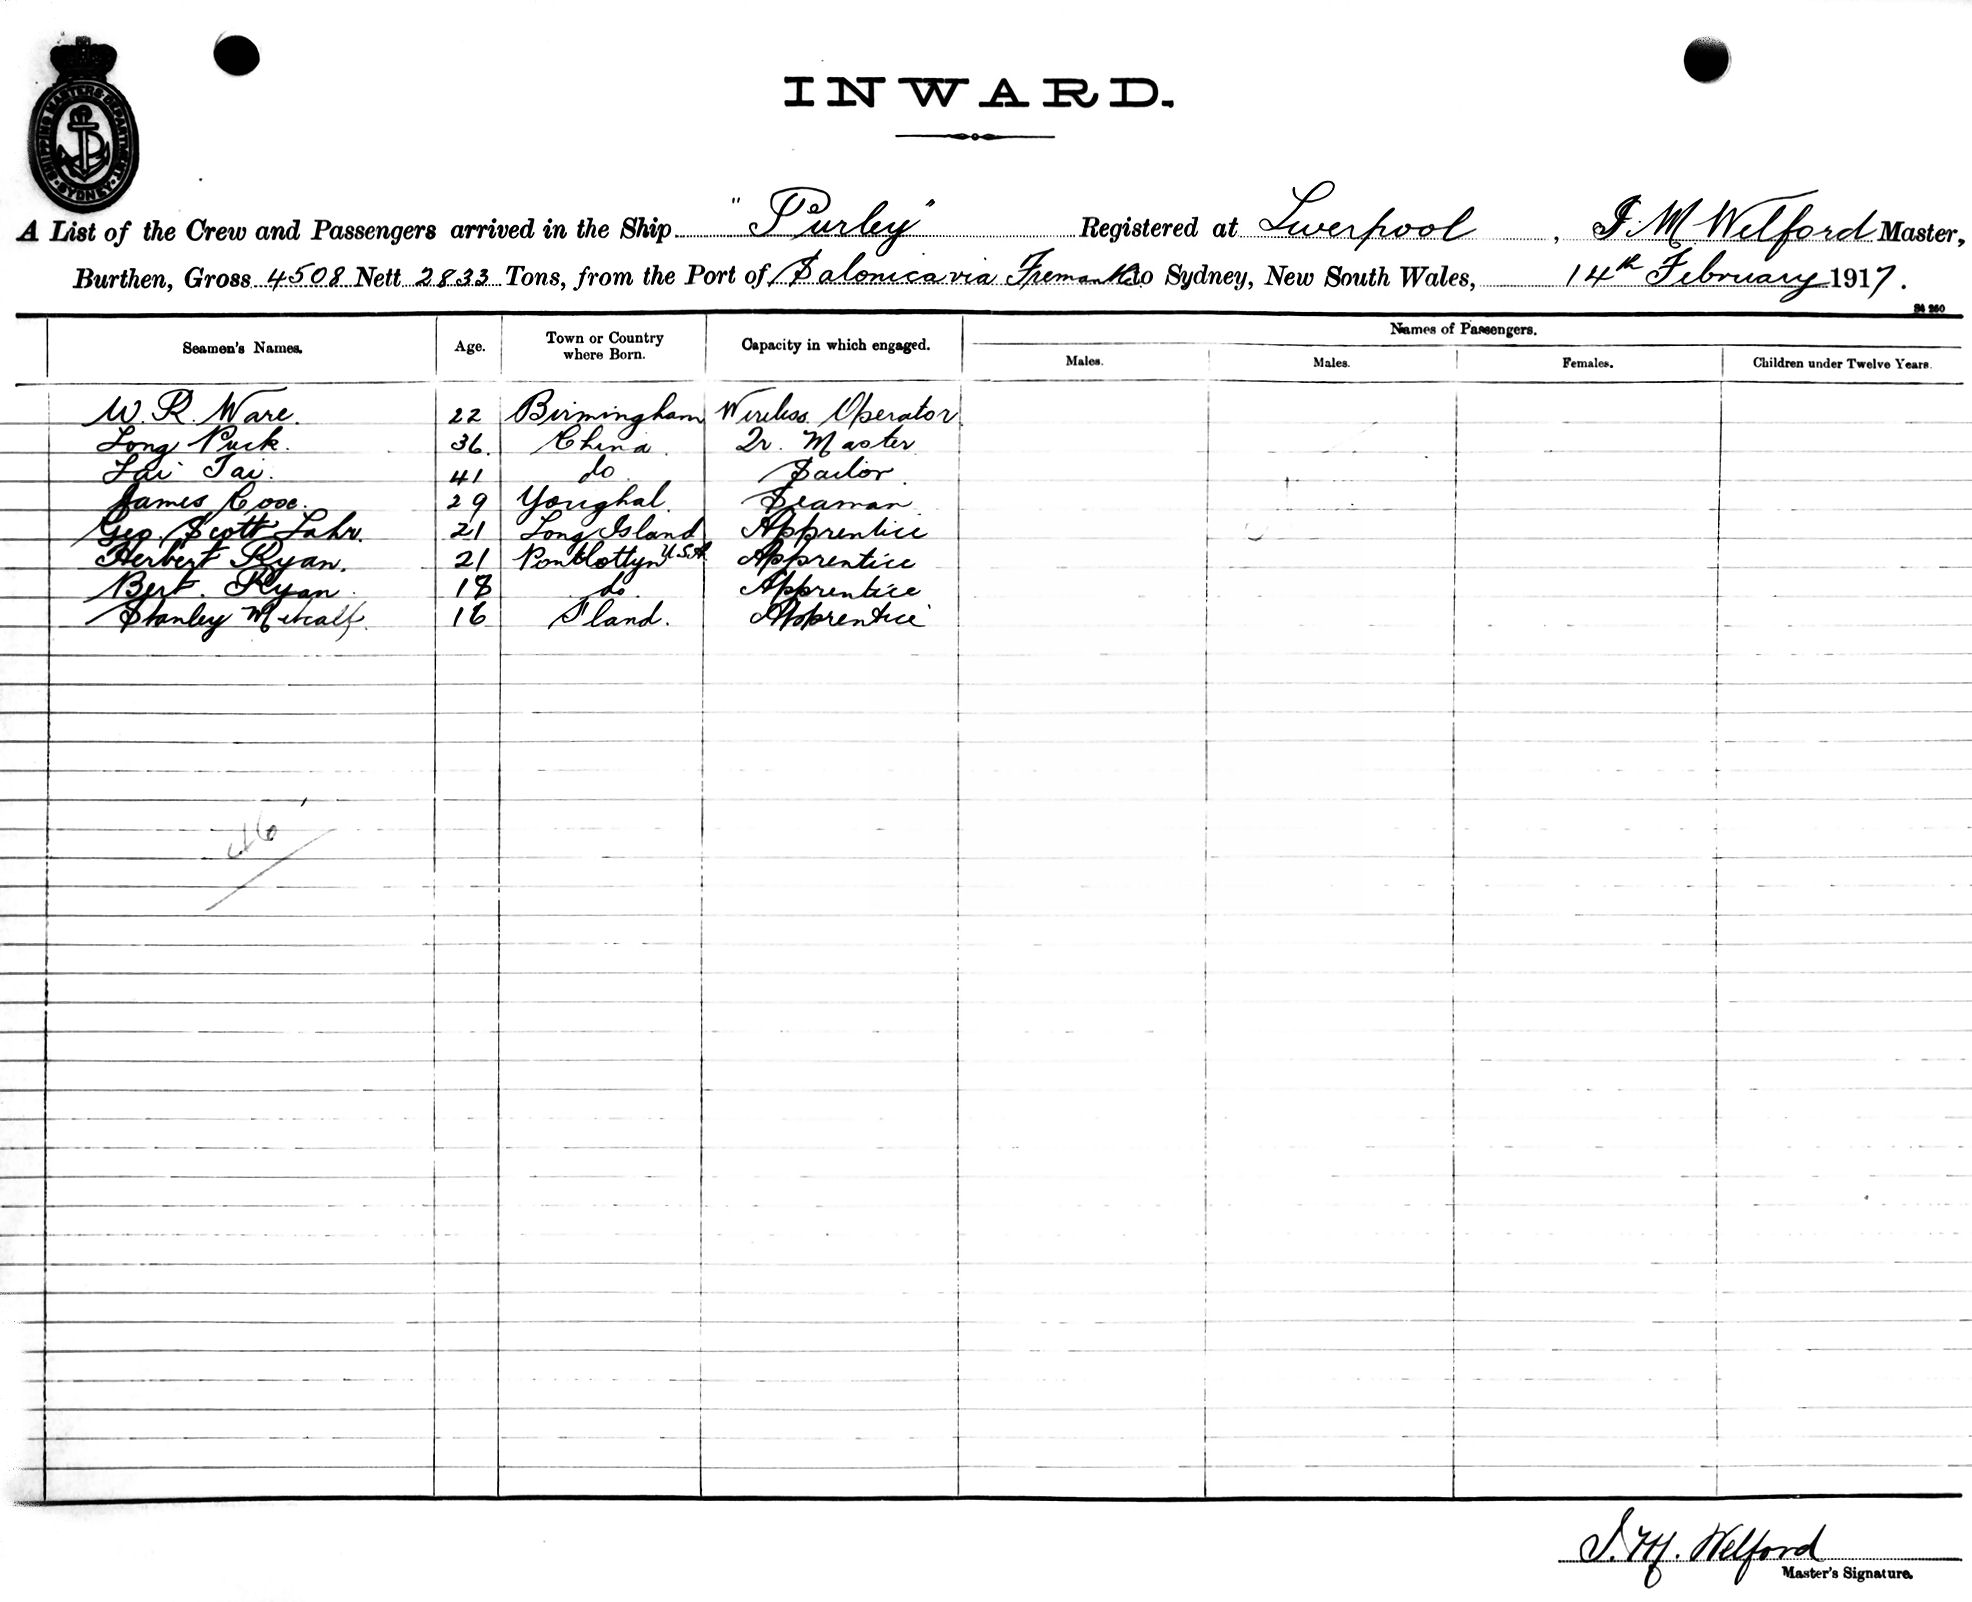 SHIPPING MASTERS DEPARTMENT
SYDNEY
INWARD.
A List of the Crew and Passengers arrived in the Ship "Purley" Registered at Liverpool, J. M Welford Master,
Burthen, Gross 4508 Nett 2833 Tons, from the Port of Salonica via Fremantle to Sydney, New South Wales, 14th February 1917.
Seamen's Names. Age. Town or Country where Born. Capacity in which engaged. Names of Passengers.
Males. Males. Females. Children under Twelve Years.
W. R. Ware. 22 Birmingham Wireless Operator
Long Puck. 36. China. Qr. Master
Lai Tai. 41 do Sailor.
James Coox. 29 Youghal. Seaman
Geo. Scott Lahr. 21 Long Island U.S.A. Apprentice
Herbert Ryan. 21 Pontlottyn Apprentice
Bert. Ryan. 18 do. Apprentice
Stanley Metcalf. 16 Apprentice
46
J. M. Welford
Master's Signature.